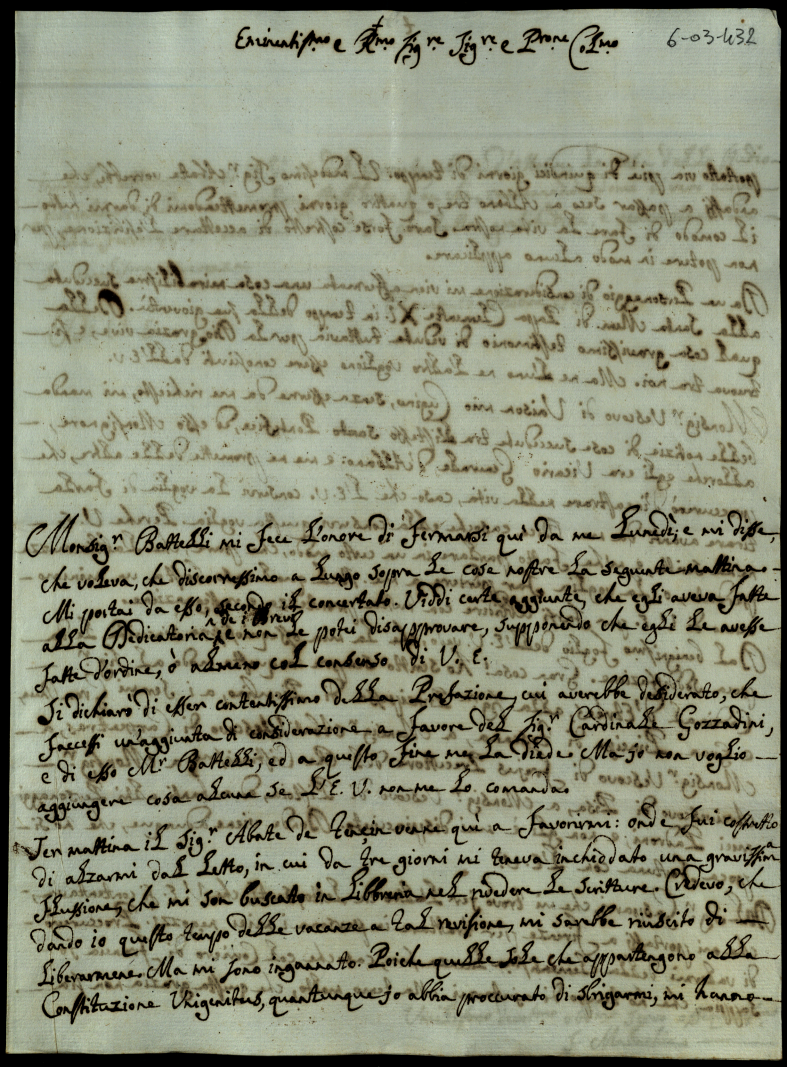 6-03-432
Eminentissmo e Rmo Sigre Sigre e Prone Colmo
Monsigr Battelli mi fece l'onore di fermarsi quì da me Lunedì, e mi disse,
che voleva, che discorressimo a lungo sopra le cose nostre la seguente mattina.
Mi portai da esso, secondo il concertato. Viddi certe aggiunte, che egli aveva fatte
alla Dedicatoria de i Brevi, e non le potei disapprovare, supponendo che egli le avesse
fatte d'ordine, ò almeno col consenso di V. E.
Si dichiarò di esser contentissimo della Prefazione, cui averebbe desiderato, che
facessi un'aggiunta di considerazione a favore del Sigr Cardinale Gozzadini,
e di esso Mr Battelli, ed a questo fine me la diede. Ma io non voglio
aggiungere cosa alcuna se l'E. V. non me lo comanda.
Jer mattina il Sigr Abate de Tencin venne quì a favorirmi: onde fui costretto
di alzarmi dal letto, in cui da tre giorni mi teneva inchiodato una gravissima
flussione, che mi son buscato in Libbreria nel rivedere le scritture. Credevo, che
dando io questo tempo delle vacanze a tal revisione, mi sarebbe riuscito di
liberarmene. Ma mi sono ingannato. Poiche quelle sole che appartengono alla
Constituzione Unigenitus, quantunque io abbia proccurato di sbrigarmi, mi hanno